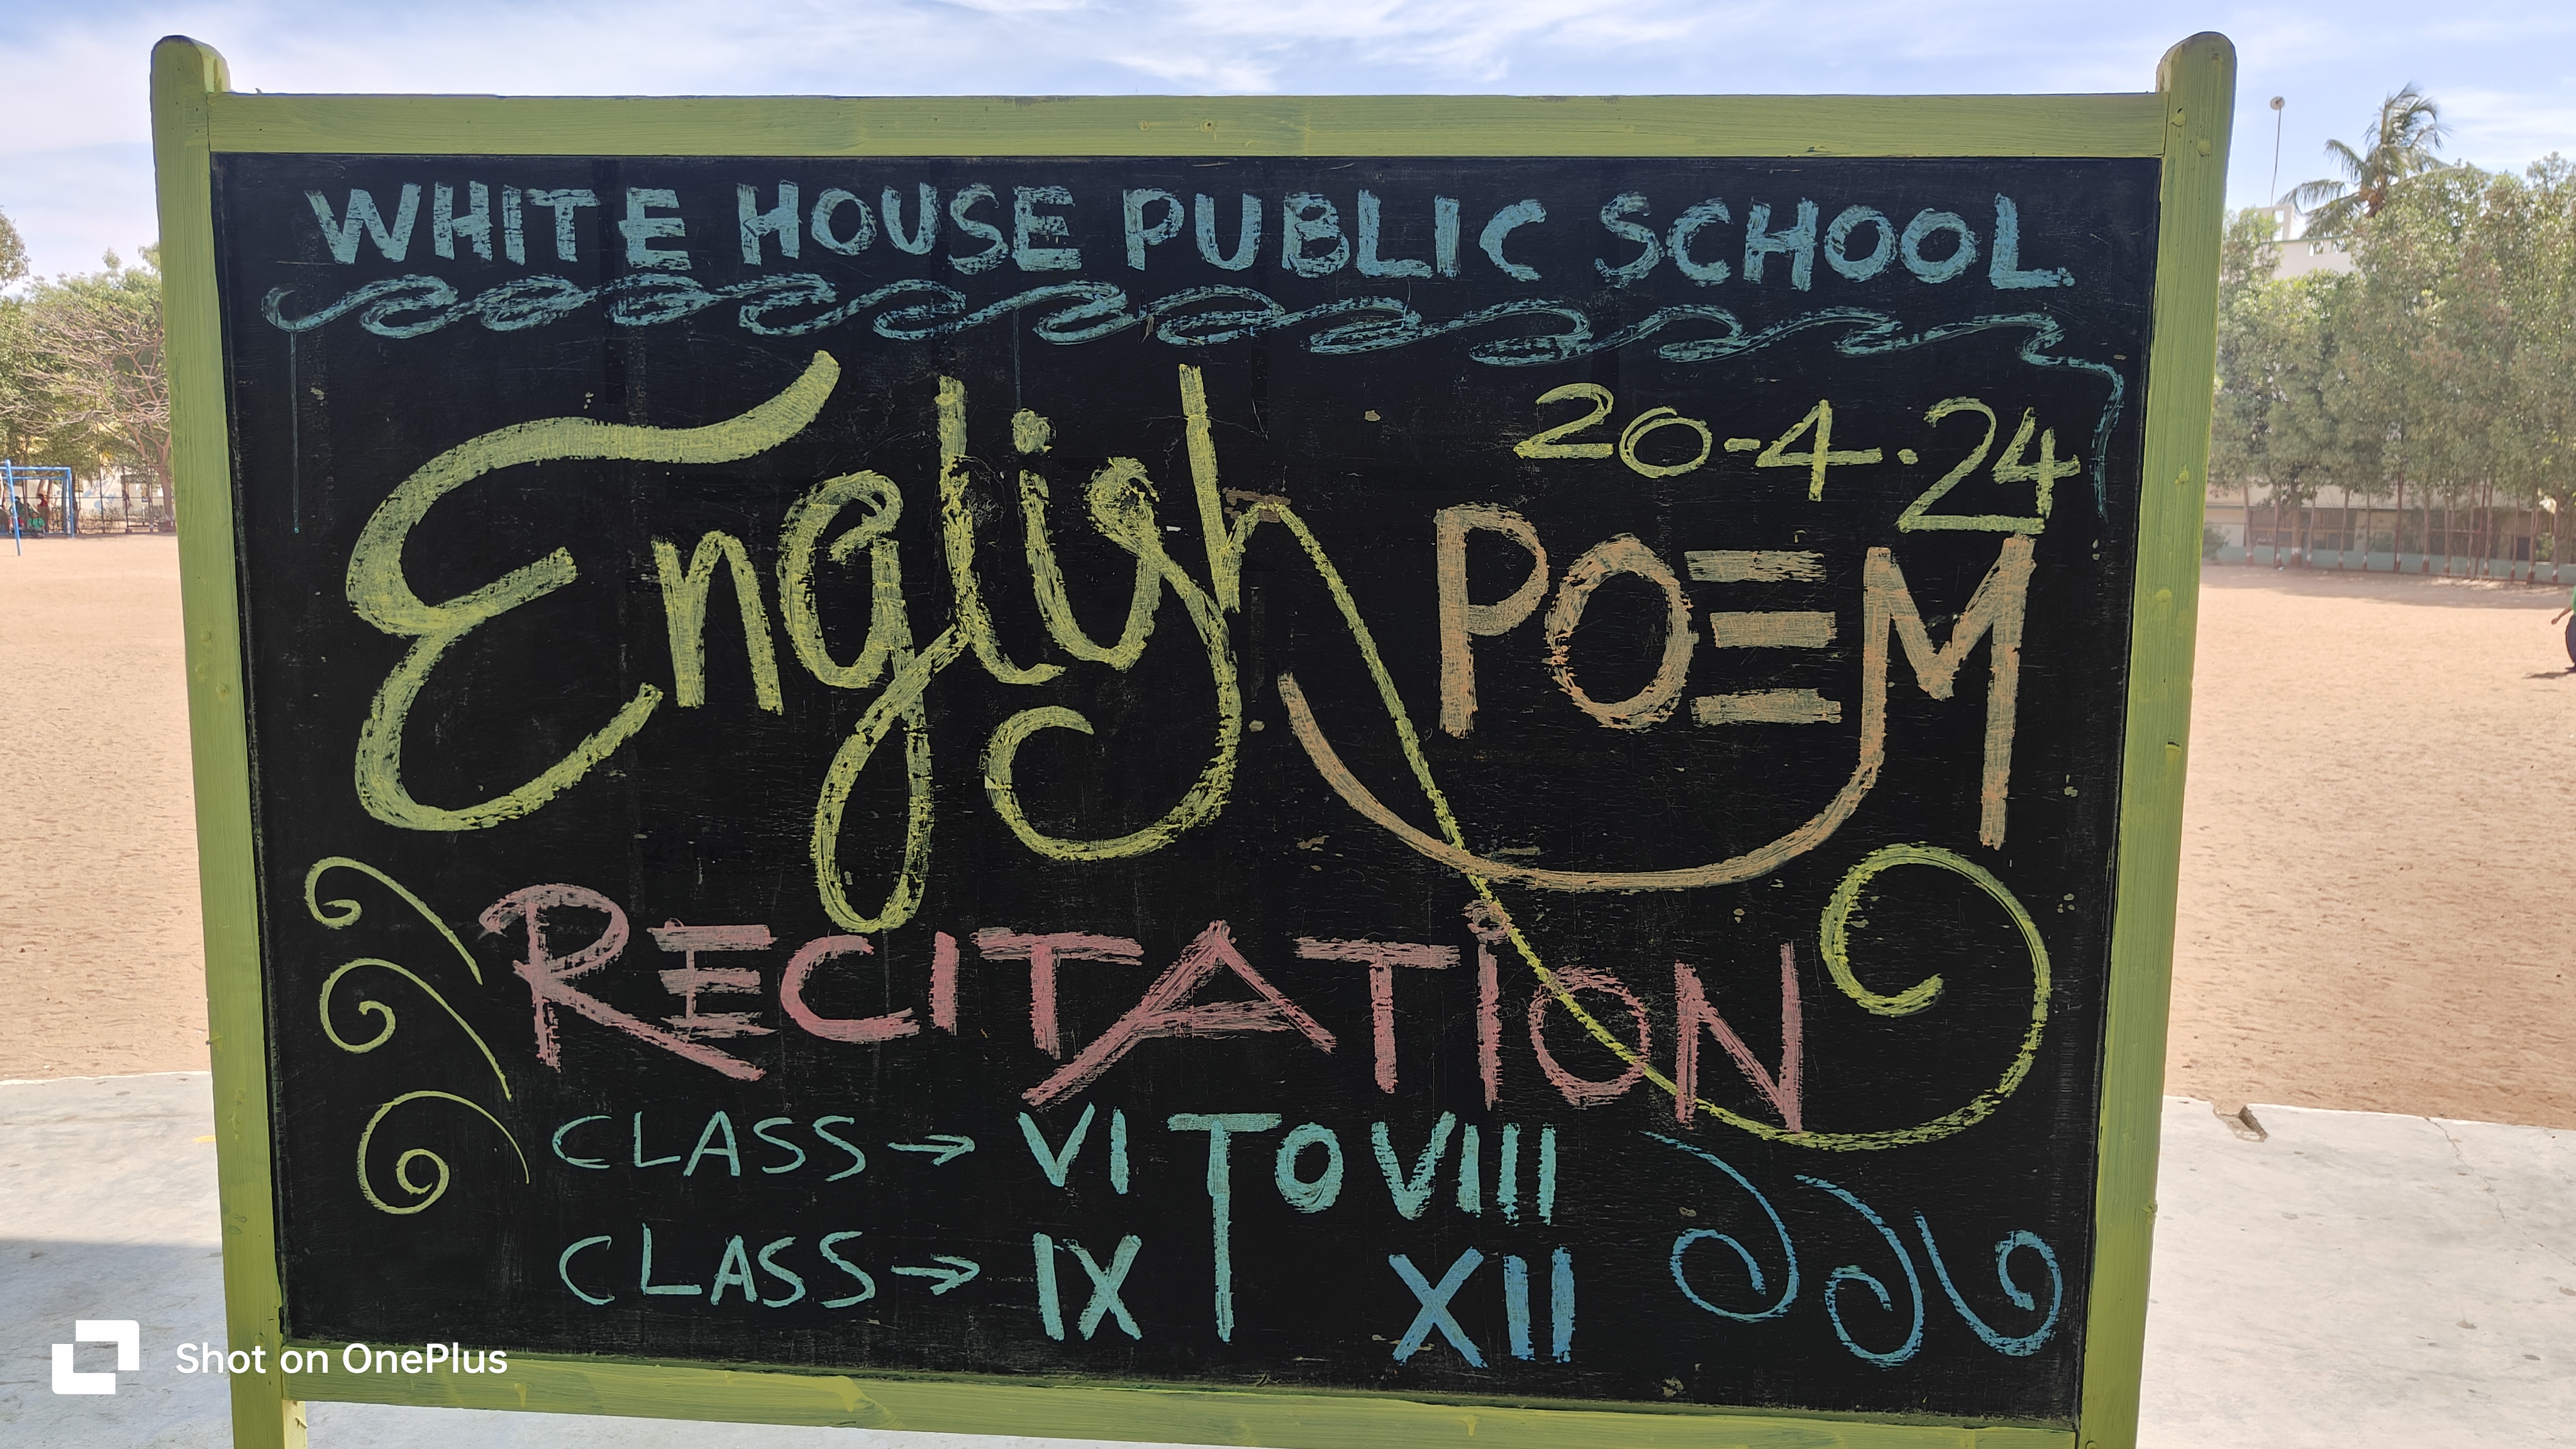 WHITE HOUSE PUBLIC SCHOOL
20-4.24
English POEM
RECITATiON
CLASS → VI TO VIII
CLASS → IX T XII
Shot on OnePlus